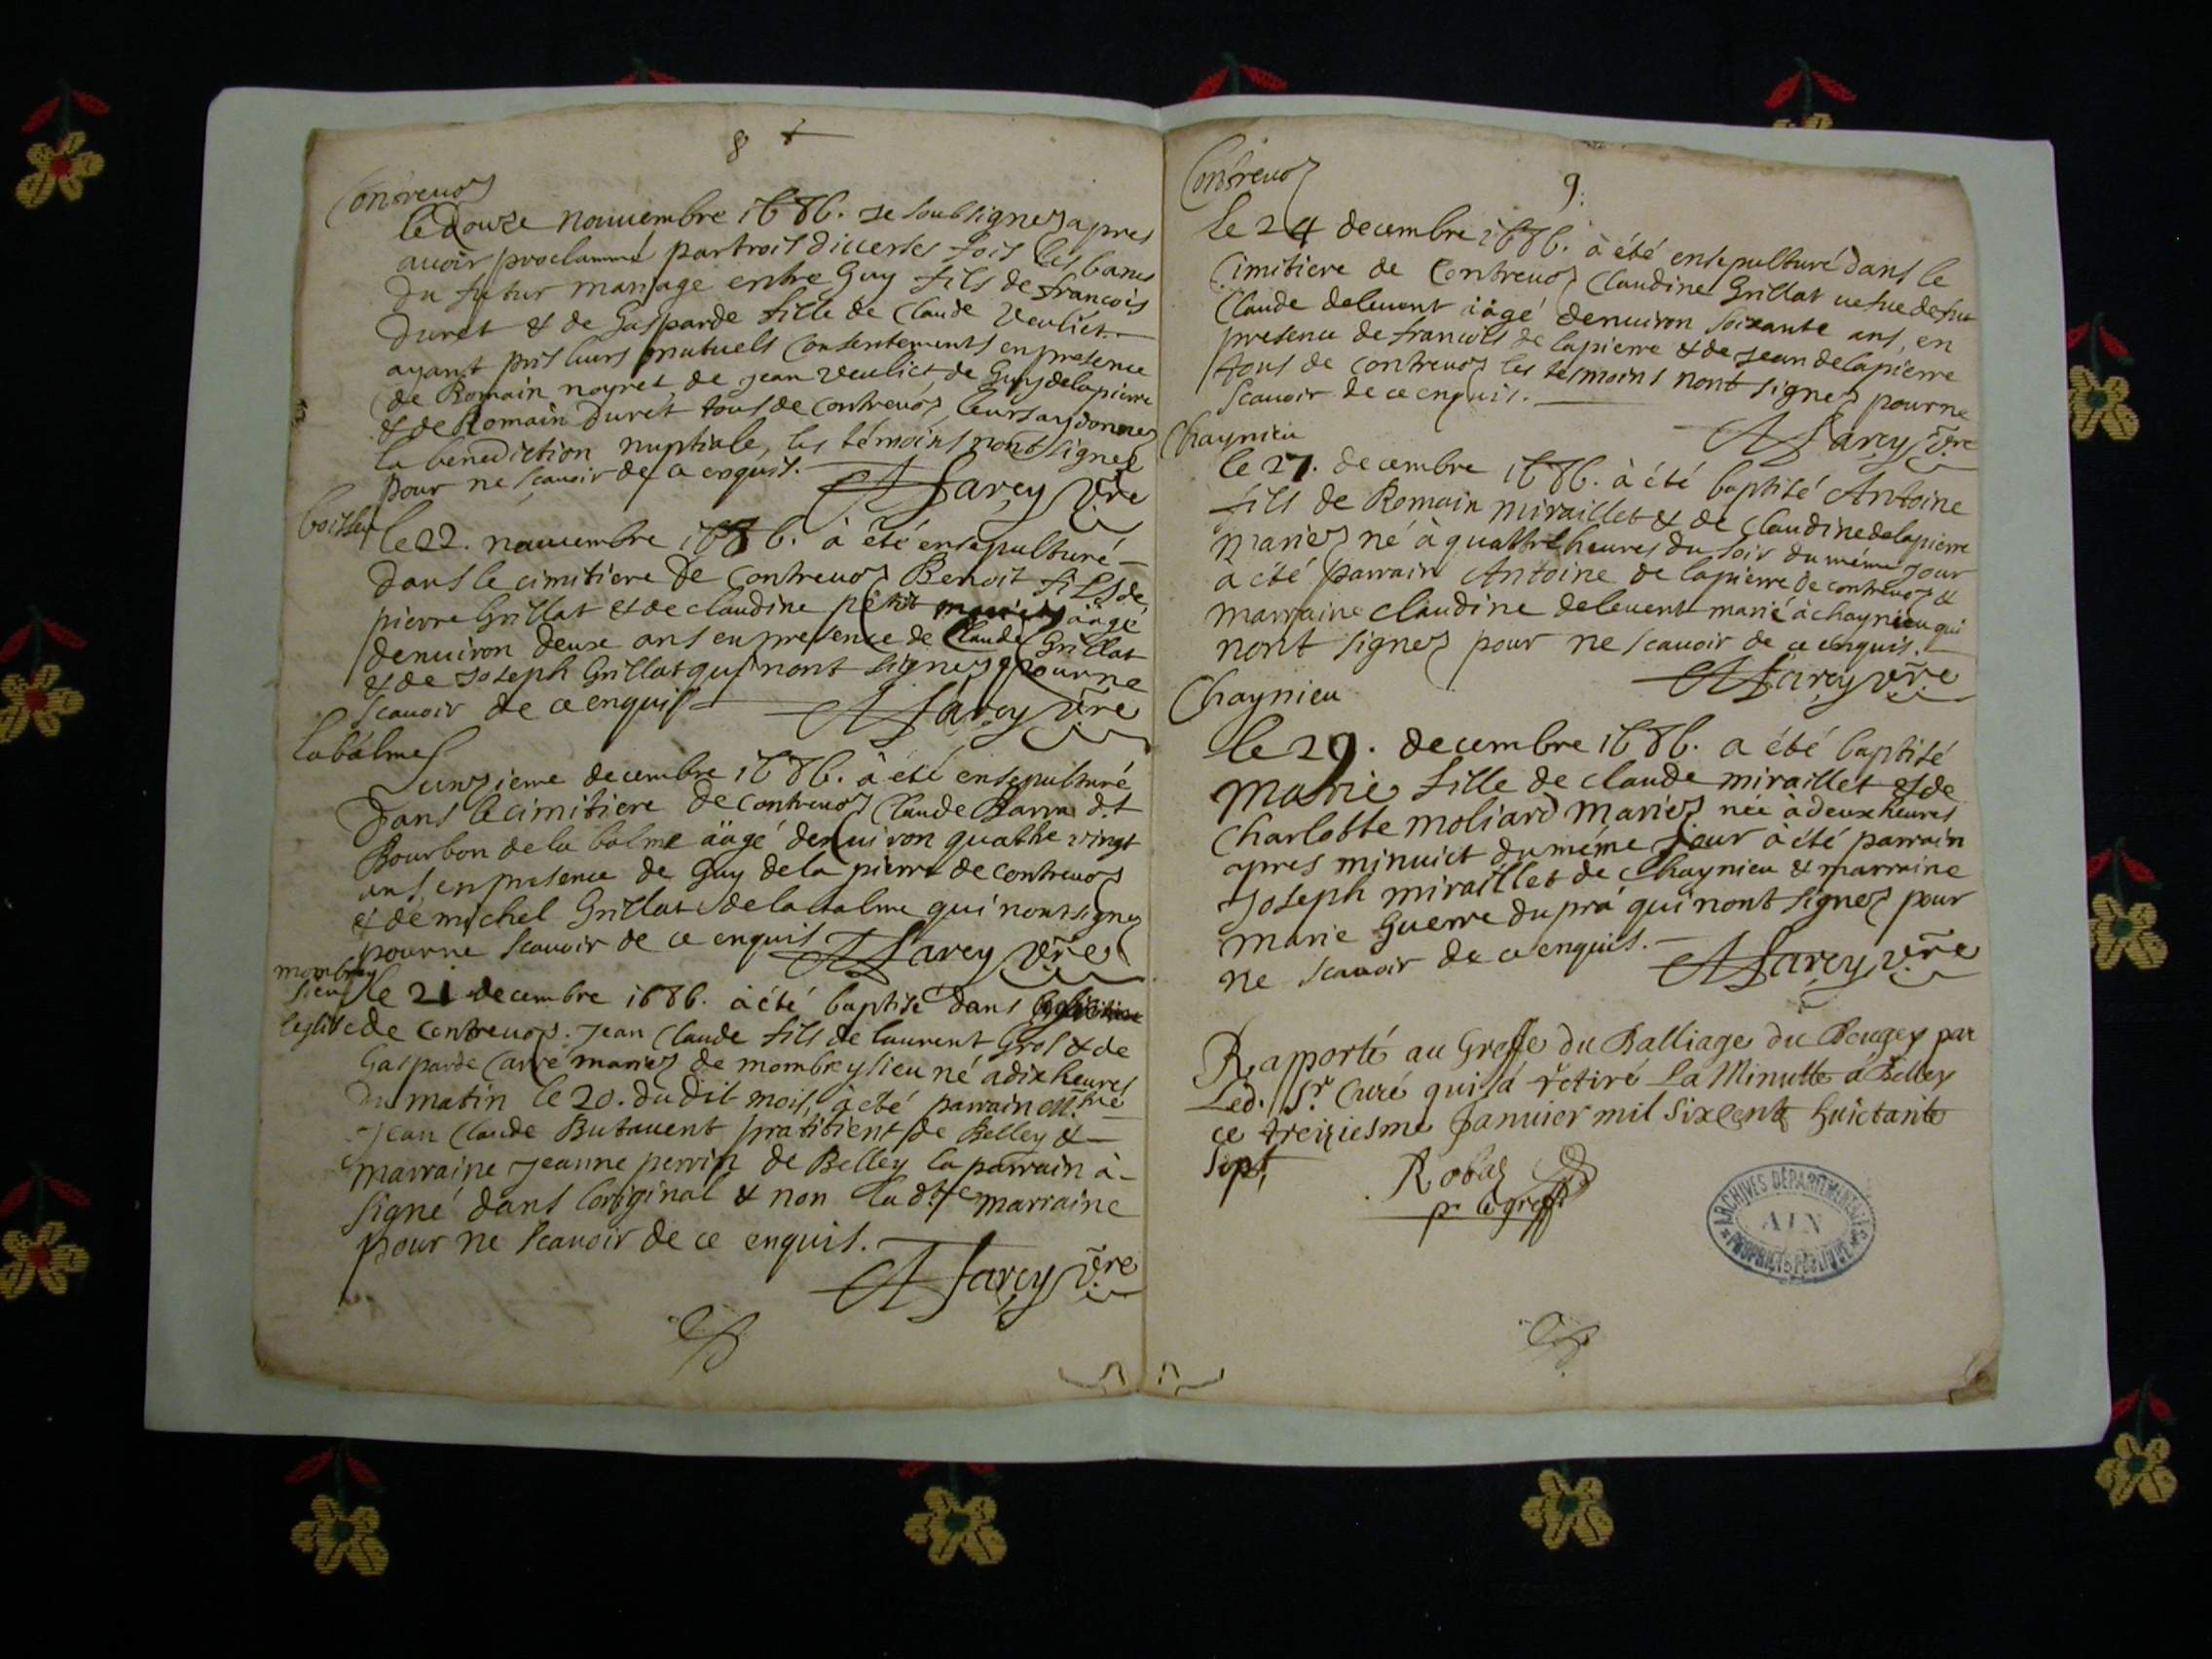 8
Contrevoz
le douze nouuembre 1686. Je soubsignez apres
auoir proclammé par trois diuerses fois les bancs
du futur mariage entre Guy fils de francois
Duret & de Gasparde fille de Claude Veuliet.
ayant pris leurs mutuels Consentements en presence
de Romain noyret, de Jean Veuliet, de Guy delapierre
& de Romain Duret tous de Contreuoz leurs ay donnez
la benediction nuptiale, les témoins nont signez
pour ne scauoir de ce enquis.
A Sarcy vre
boissieu
le 22. nouuembre 1686. à été ensepulturé
dans le cimitiere de Contreuoz Benoit fils de
pierre Grillat & de claudine petit mariez äagé
denuiron deux ans en presence de Claude Grillat
& de Joseph Grillat qui nont signez pour ne
scauoir de ce enquis
A Sarcy vre
labalme
Lunzieme decembre 1686. à été ensepulturé
Dans le cimitiere de Contreuoz Claude Barra d.t
Bourbon de la balme äagé denuiron quattre vingt
ans, en presence de Guy de la pierre de Contreuoz
& de michel Grillat de la balme qui nont signez
pour ne scauoir de ce enquis
A Sarcy vre
mombrey
sieu
le 21 decembre 1686. à été baptisé dans
leglise de Contreuoz. Jean Claude fils de laurent Gros & de
Gasparde Carre mariez de mombreysieu né a dix heures
du matin le 20. du dit mois, à été parrain M.tre
Jean Claude Butauent pratitient de Belley &
marraine Jeanne perrin de Belley la parrain à
signé dans loriginal & non lad.te marraine
pour ne scauoir de ce enquis.
A Sarcy vre
Contreuoz
9.
le 24 decembre 1686. à été ensepulturé dans le
Cimitiere de Contreuoz Claudine Grillat uefue de fut
Claude deleuent äagé denuiron soixante ans, en
presence de francois de lapierre & de Jean delapierre
tous de Contreuoz les tesmoins nont signez pour ne
scauoir de ce enquis.
A Sarcy vre
Chaynieu
le 27. decembre 1686. à été baptisé Antoine
fils de Romain miraillet & de Claudine delapierre
mariez né à quattre heures du soir du même jour
à été parrain Antoine de lapierre de contreuoz &
marraine claudine deleuent marié à chaynieu qui
nont signez pour ne scauoir de ce enquis.
A Sarcy vre
Chaynieu
le 29. decembre 1686. a été baptisé
Marie fille de claude miraillet & de
Charlotte moliard mariez née à deux heures
apres minuict du méme jour à été parrain
Joseph miraillet de Chaynieu & marraine
marie Guerre du pra qui nont signez pour
ne scauoir de ce enquis.
A Sarcy vre
Rapporté au Greffe du Balliage du Beugey par
Led. Sr. Curé qui a retiré La Minutte a Belley
ce treiziesme Januier mil six cents huictante
sept,
Robaz
pr le greffe
ARCHIVES DÉPARTEMENTALES
AIN
PROPRIÉTÉ PUBLIQUE